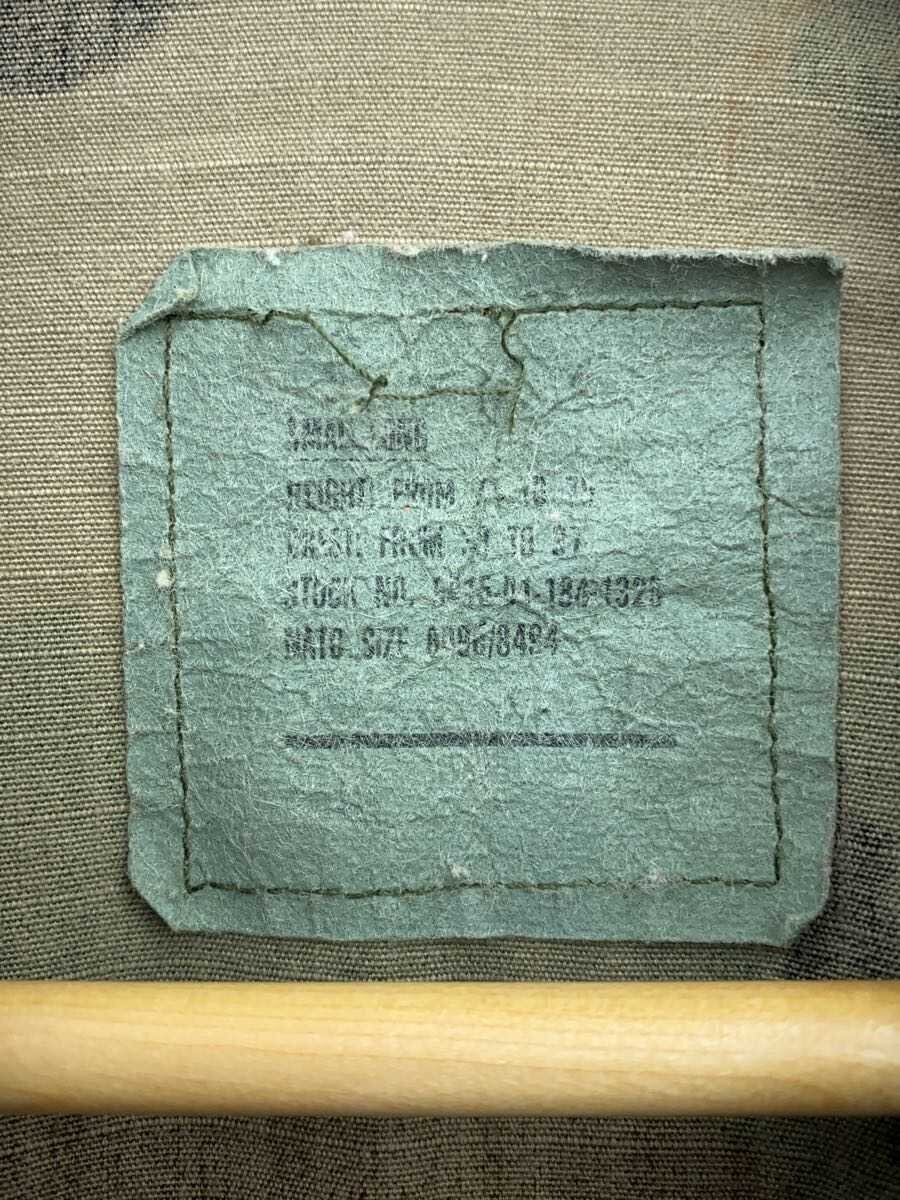 SMALL LONG
HEIGHT: FROM TO 75
CHEST: FROM TO 37
STOCK NO. 8415-01-184-1328
NATO SIZE 8494